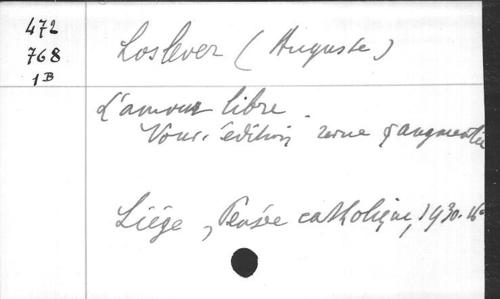 472
768
1B
Loslever (Auguste)
L'amour libre.
Nouv. édition revue & augmentée
Liége, Pensée catholique, 1930. 16°